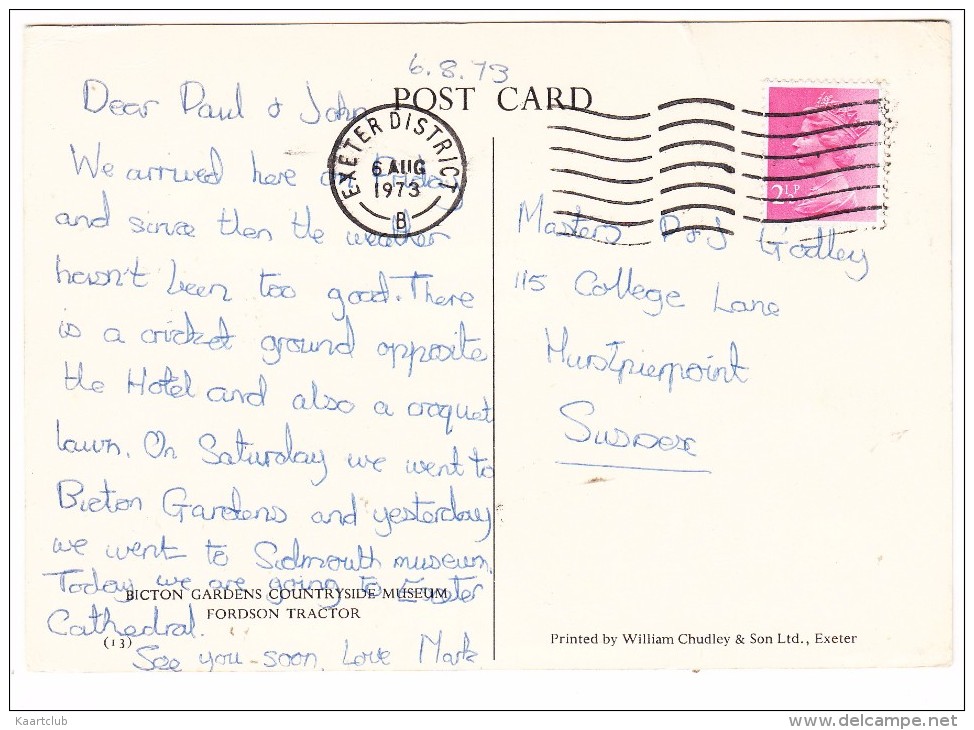 6.8.73
POST CARD
Dear Paul & John
We arrived here on Friday
and since then the weather
hasn't been too good. There
is a cricket ground opposite
the Hotel and also a croquet
lawn. On Saturday we went to
Bicton Gardens and yesterday
we went to Sidmouth museum.
Today we are going to Exeter
Cathedral.
See you soon. Love Mark
EXETER DISTRICT
6 AUG
1973
B
2½P
Masters P & J Godley
115 College Lane
Hurstpierpoint
Sussex
BICTON GARDENS COUNTRYSIDE MUSEUM
FORDSON TRACTOR
(13)
Printed by William Chudley & Son Ltd., Exeter
Kaartclub
www.delcampe.net